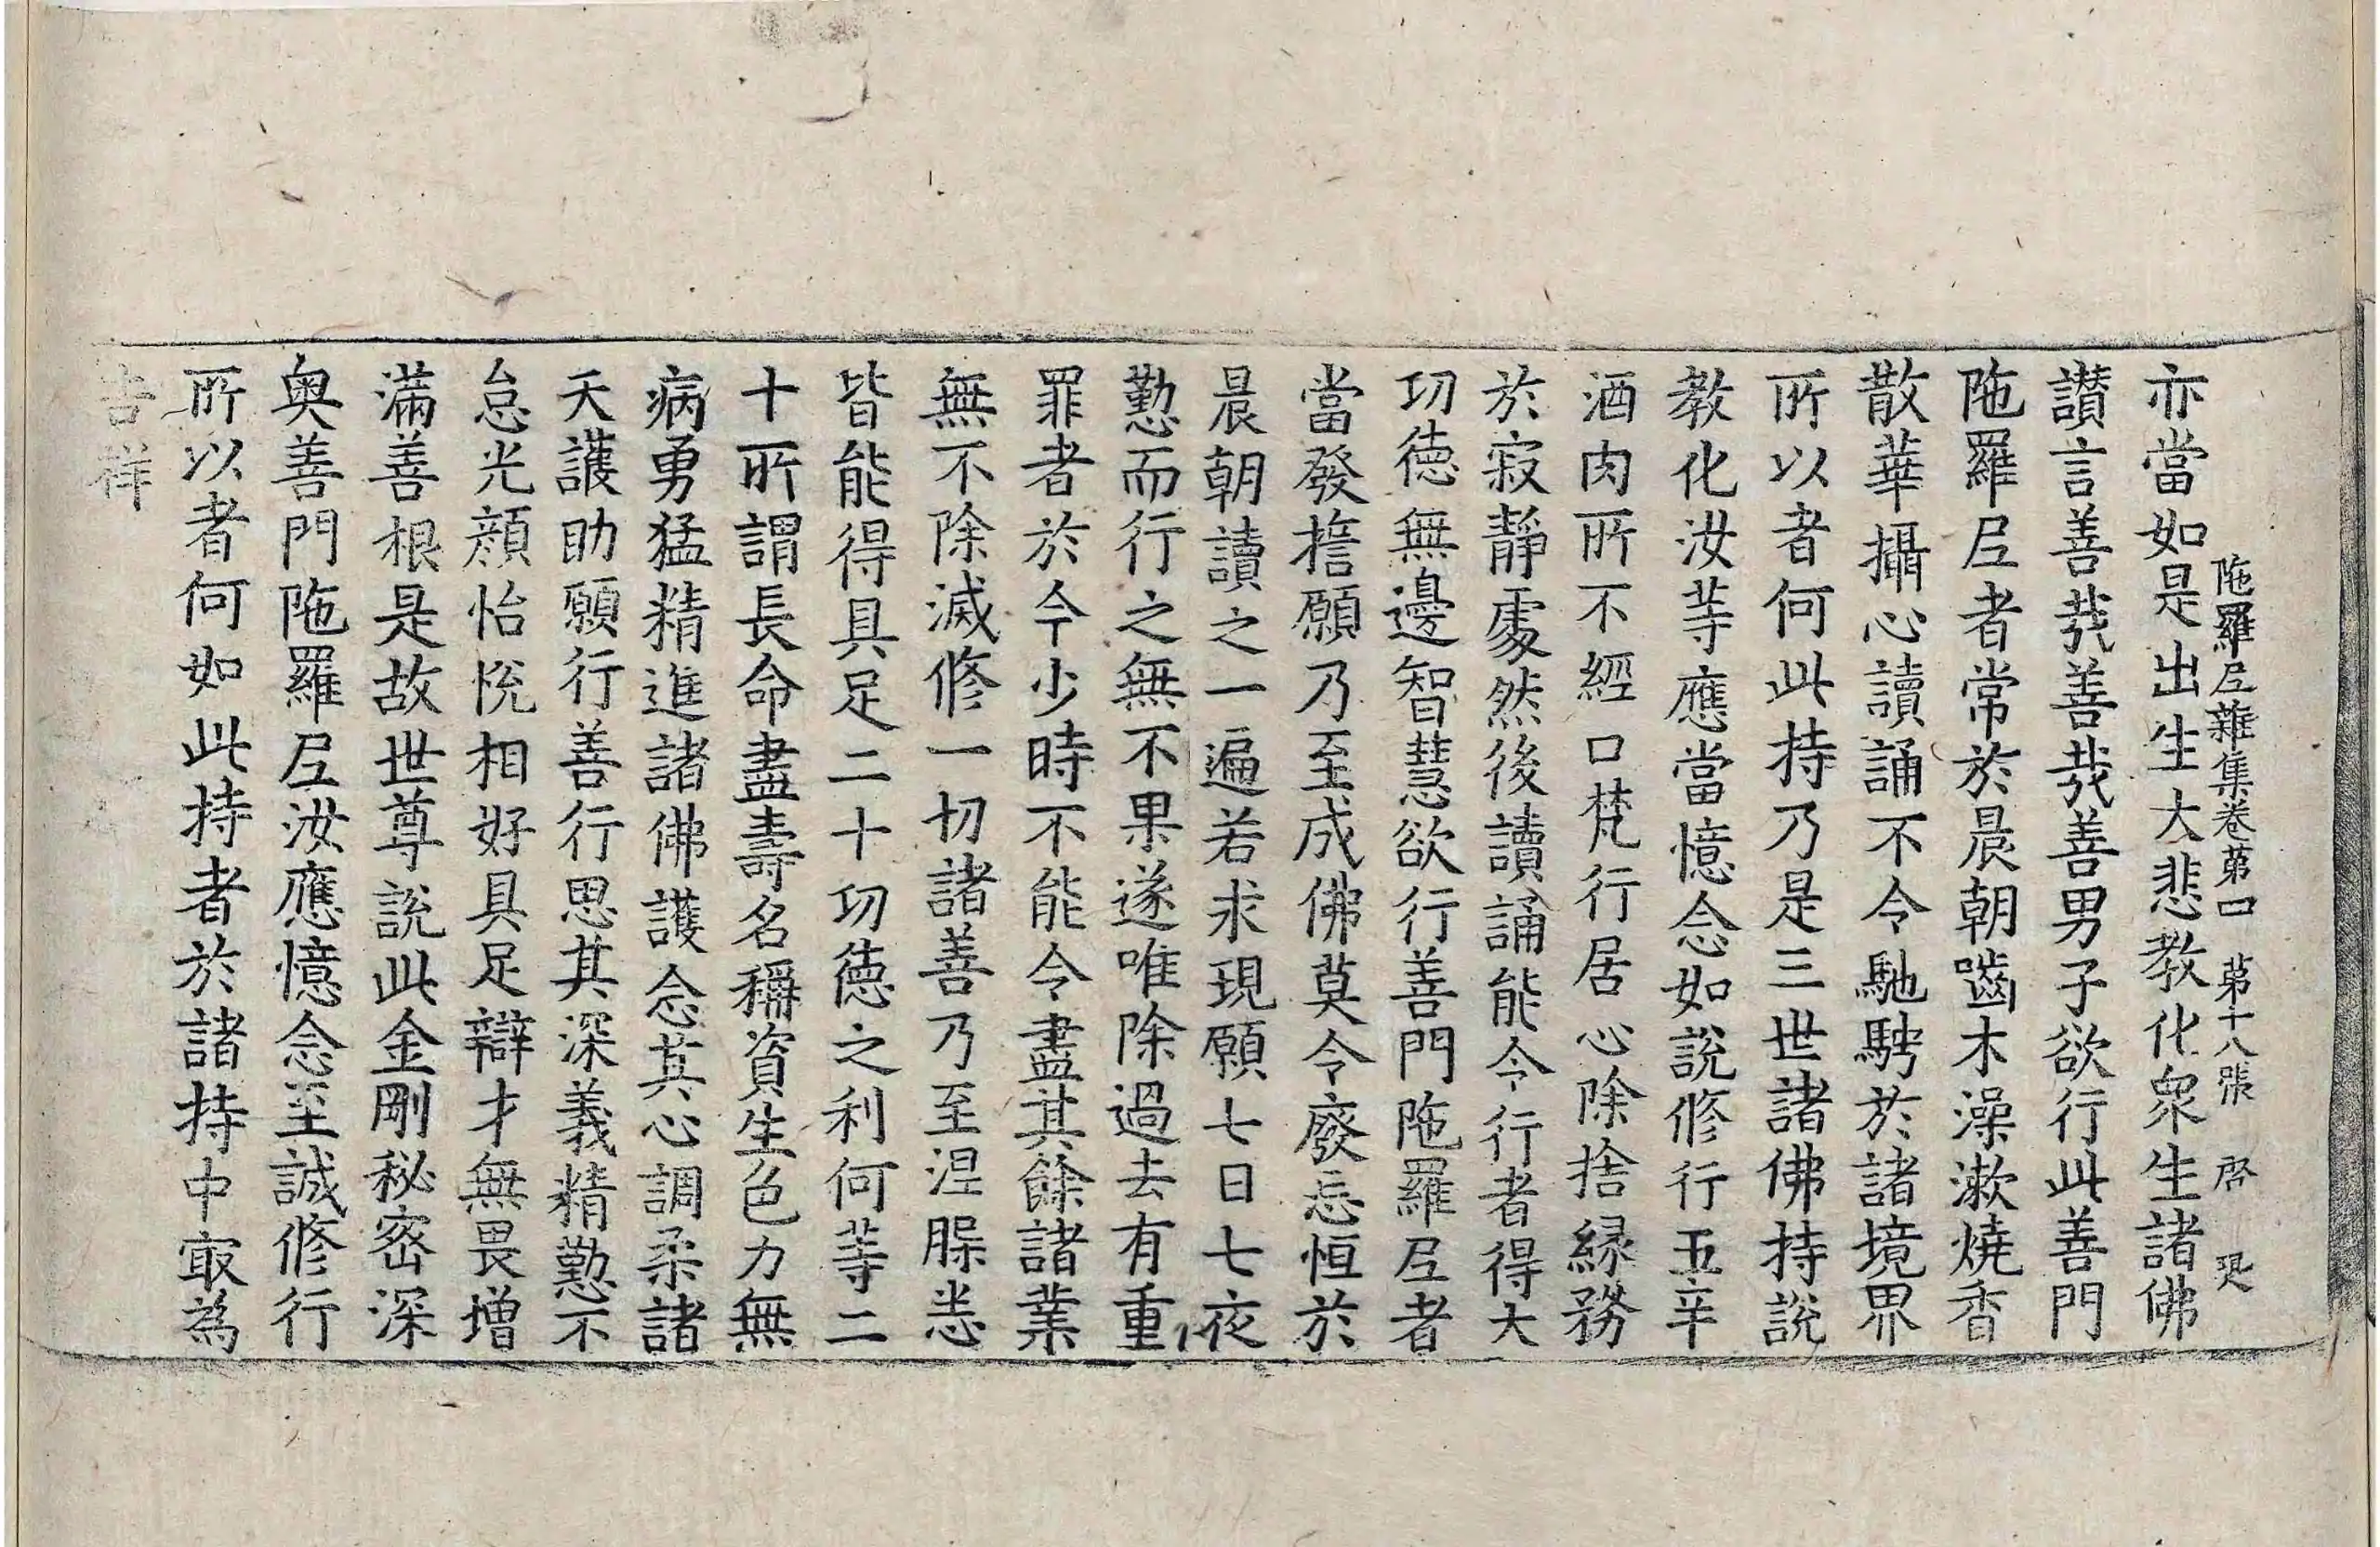 陁羅尼雜集卷第四 第十八張 啓
亦當如是出生大悲教化衆生諸佛
讃言善㢤善㢤善男子欲行此善門
陁羅尼者常於晨朝嚙木澡漱燒香
散華攝心讀誦不令馳騁於諸境界
所以者何此持乃是三世諸佛持說
教化汝等應當憶念如說修行五辛
酒肉所不經口梵行居心除捨緣務
於寂靜處然後讀誦能令行者得大
功德無邊智慧欲行善門陁羅尼者
當發擔願乃至成佛莫令廢忘恒於
晨朝讀之一遍若求現願七日七夜
懃而行之無不果遂唯除過去有重
罪者於今少時不能令盡其餘諸業
無不除滅修一切諸善乃至涅槃悉
皆能得具足二十功德之利何等二
十所謂長命盡壽名稱資生色力無
病勇猛精進諸佛護念其心調柔諸
天護助願行善行思其深義精懃不
怠光顔怡悅相好具足辯才無畏增
滿善根是故世尊說此金剛秘密深
奧善門陁羅尼汝應憶念至誠修行
所以者何如此持者於諸持中冣為
吉祥